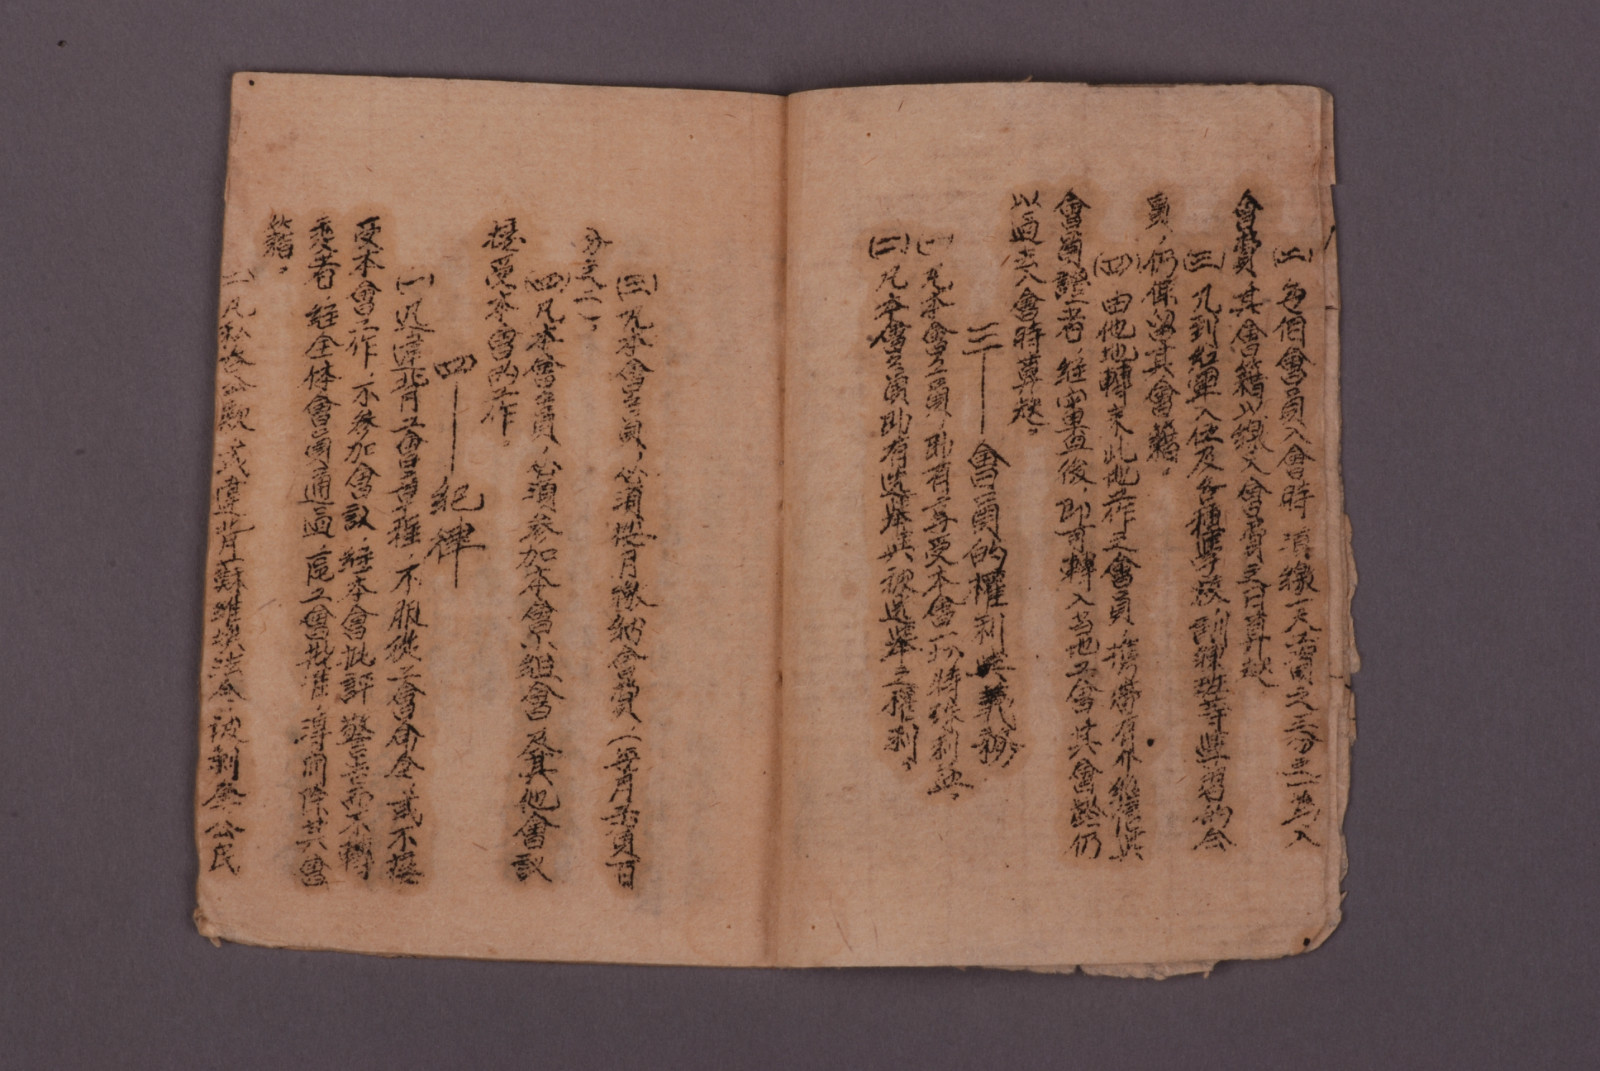 (二)每個會員入會時須繳一天工資之三分之一為入
會費其會籍以繳交入會費之日算起
(三)凡到紅軍入伍及各種學校訓練班等學習的會
員，仍保留其會籍。
(四)由他地轉來此地工作之會員，攜帶有介紹信與
會員證者，經審查後，即可轉入當地工會其會齡仍
以過去入會時算起。
三——會員的權利與義務
(一)凡本會會員，即有享受本會一切特殊利益。
(二)凡本會會員即有選舉與被選舉之權利。
(三)凡本會會員，必須按月繳納會費，(每月工資百
分之一)。
(四)凡本會會員，必須參加本會小組會及其他會議
接受本會的工作。
四——紀律
(一)凡違背工會章程，不服從工會命令，或不接
受本會工作，不參加會議，經本會批評警告而不轉
變者，經全体會員通過，區工會批准，得開除其會
籍。
(二)凡私吞公款或違背蘇維埃法令，被剝奪公民